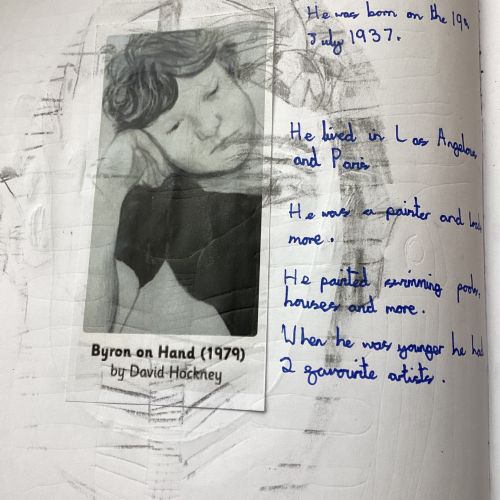 He was born on the
July 1937.
He lived in Los Angelous
and Paris
He was a painter and
more.
He painted swimming pools,
houses and more.
When he was younger he had
2 favourite artists.
Byron on Hand (1979)
by David Hockney